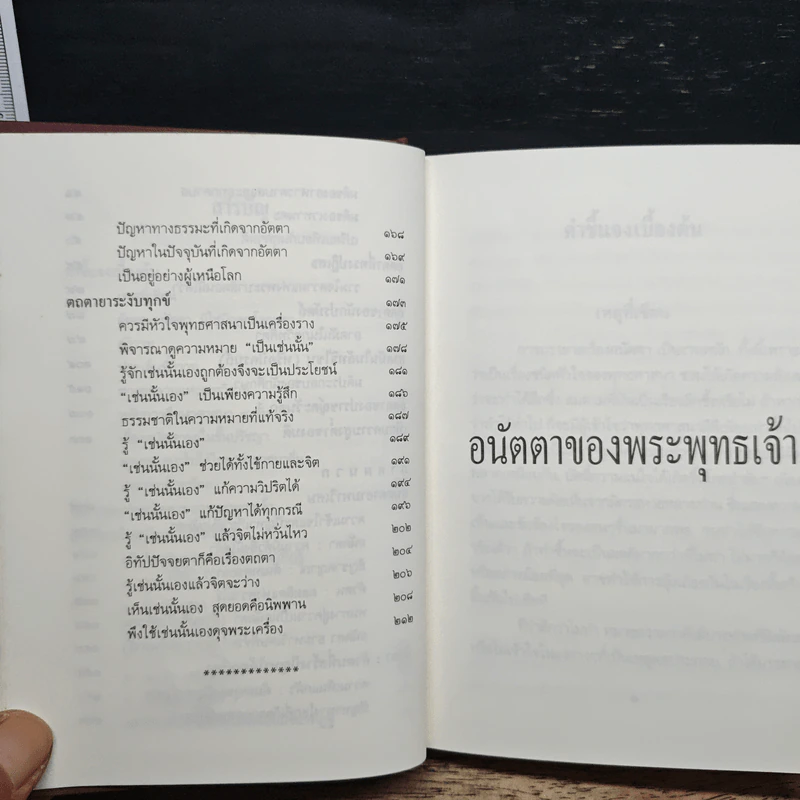 ปัญหาทางธรรมะที่เกิดจากอัตตา ๑๖๘
ปัญหาในปัจจุบันที่เกิดจากอัตตา ๑๖๙
เป็นอยู่อย่างผู้เหนือโลก ๑๗๑
ตถตายาระงับทุกข์ ๑๗๓
ควรมีหัวใจพุทธศาสนาเป็นเครื่องราง ๑๗๕
พิจารณาดูความหมาย “เป็นเช่นนั้น” ๑๗๘
รู้จักเช่นนั้นเองถูกต้องจึงจะเป็นประโยชน์ ๑๘๑
“เช่นนั้นเอง” เป็นเพียงความรู้สึก ๑๘๖
ธรรมชาติในความหมายที่แท้จริง ๑๘๗
รู้ “เช่นนั้นเอง” ๑๘๙
“เช่นนั้นเอง” ช่วยได้ทั้งไข้กายและจิต ๑๙๑
รู้ “เช่นนั้นเอง” แก้ความวิปริตได้ ๑๙๔
“เช่นนั้นเอง” แก้ปัญหาได้ทุกกรณี ๑๙๖
รู้ “เช่นนั้นเอง” แล้วจิตไม่หวั่นไหว ๒๐๒
อิทัปปัจจยตาก็คือเรื่องตถตา ๒๐๔
รู้เช่นนั้นเองแล้วจิตจะว่าง ๒๐๖
เห็นเช่นนั้นเอง สุดยอดคือนิพพาน ๒๐๘
พึงใช้เช่นนั้นเองดุจพระเครื่อง ๒๑๒
*************
อนัตตาของพระพุทธเจ้า